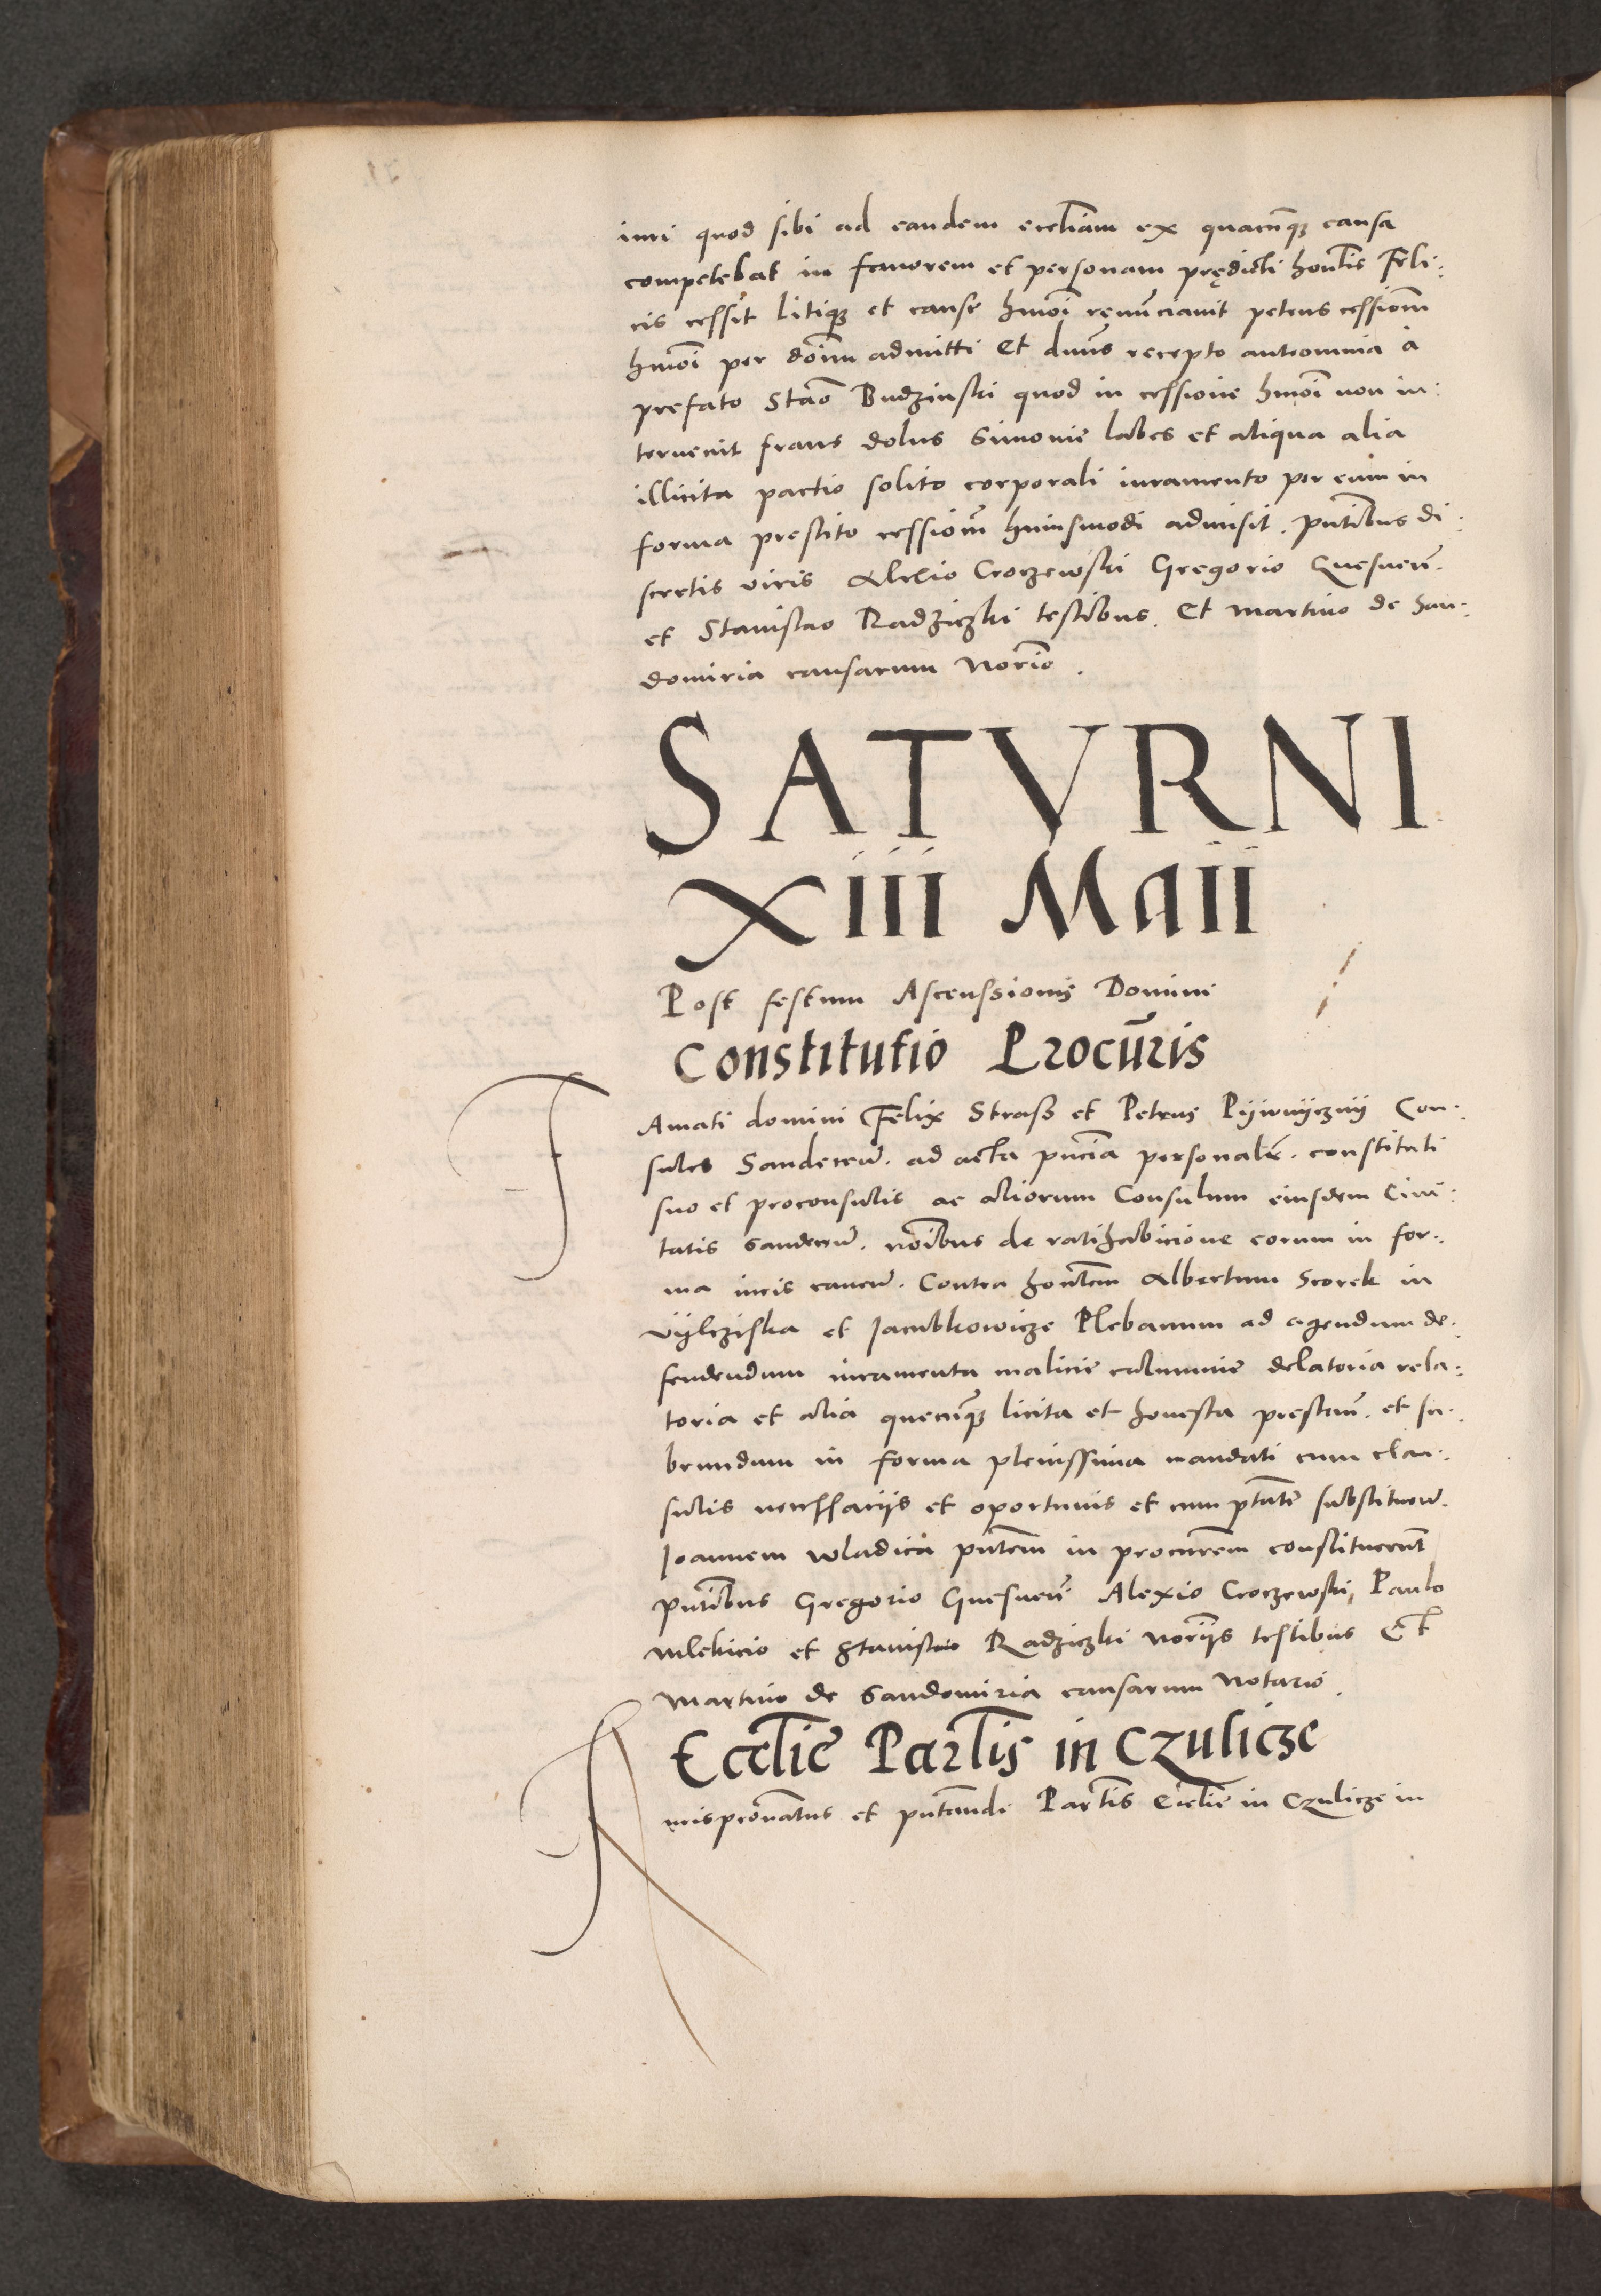 iuri quod sibi ad eandem eccl̄iam ex quacūq3 causa
competebat in fauorem et personam prędicti hon̄lis Feli:
cis cessit litiq3 et cause hmōi renūnciauit petens cessionē
hmōi per dōnū admitti Et dn̄us recepto anteomnia à
prefato Stāo Budzinski quod in cessione hmōi non in:
teruenit fraus dolus simonie labes et aliqua alia
illicita pactio solito corporali iuramento per eum in
forma prestito cessionē huiusmodi admisit. pn̄tibus di:
scretis viris Alexio Croczewski Gregorio Gnesneñ.
et Stanislao Radziczki testibus. Et martino de San:
domiria causarum Norīo.
SATVRNI
Xiii Maii
Post festum Ascenssionis Domini
Constitutio Procūris
Famati domini Felix Strasz et Petrus Pijwnijcznij Con:
sules Sandeceñ. ad acta pn̄cia personalr̄. constituti
suo et proconsulis ac aliorum Consulum eiusdem Ciui:
tatis sandeceñ. nōibus de ratihabicione eorum in for:
ma iuris caueñ. Contra hon̄lem Albertum Scorek in
vijlcziska et Jacubkowicze Plebanum ad agendum de:
fendendum iuramenta malicie calumnie delatoria rela:
toria et alia quecūq3 licita et honesta prestañ. et su:
beundum in forma plenissima mandati cum clau:
sulis necessarijs et oportunis et cum ptāte substitueñ.
Joannem wladica pn̄tem in procūrem constituerunt
pn̄tibus Gregorio Gnesneñ Alexio Croczewski, Paulo
mlekicio et Stanislao Radziczki norīis testibus Et
Martino de Sandomiria causarum Notario.
Eccl̄ie Par̄lis in Czulicze
Jurispr̄onatus et pn̄tandi Par̄lis Eccl̄ie in Czulicze in